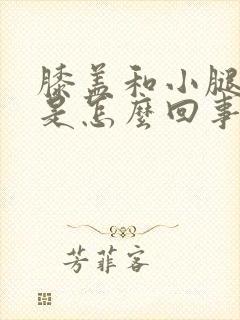 膝盖和小腿
是怎麼回事
芳菲客